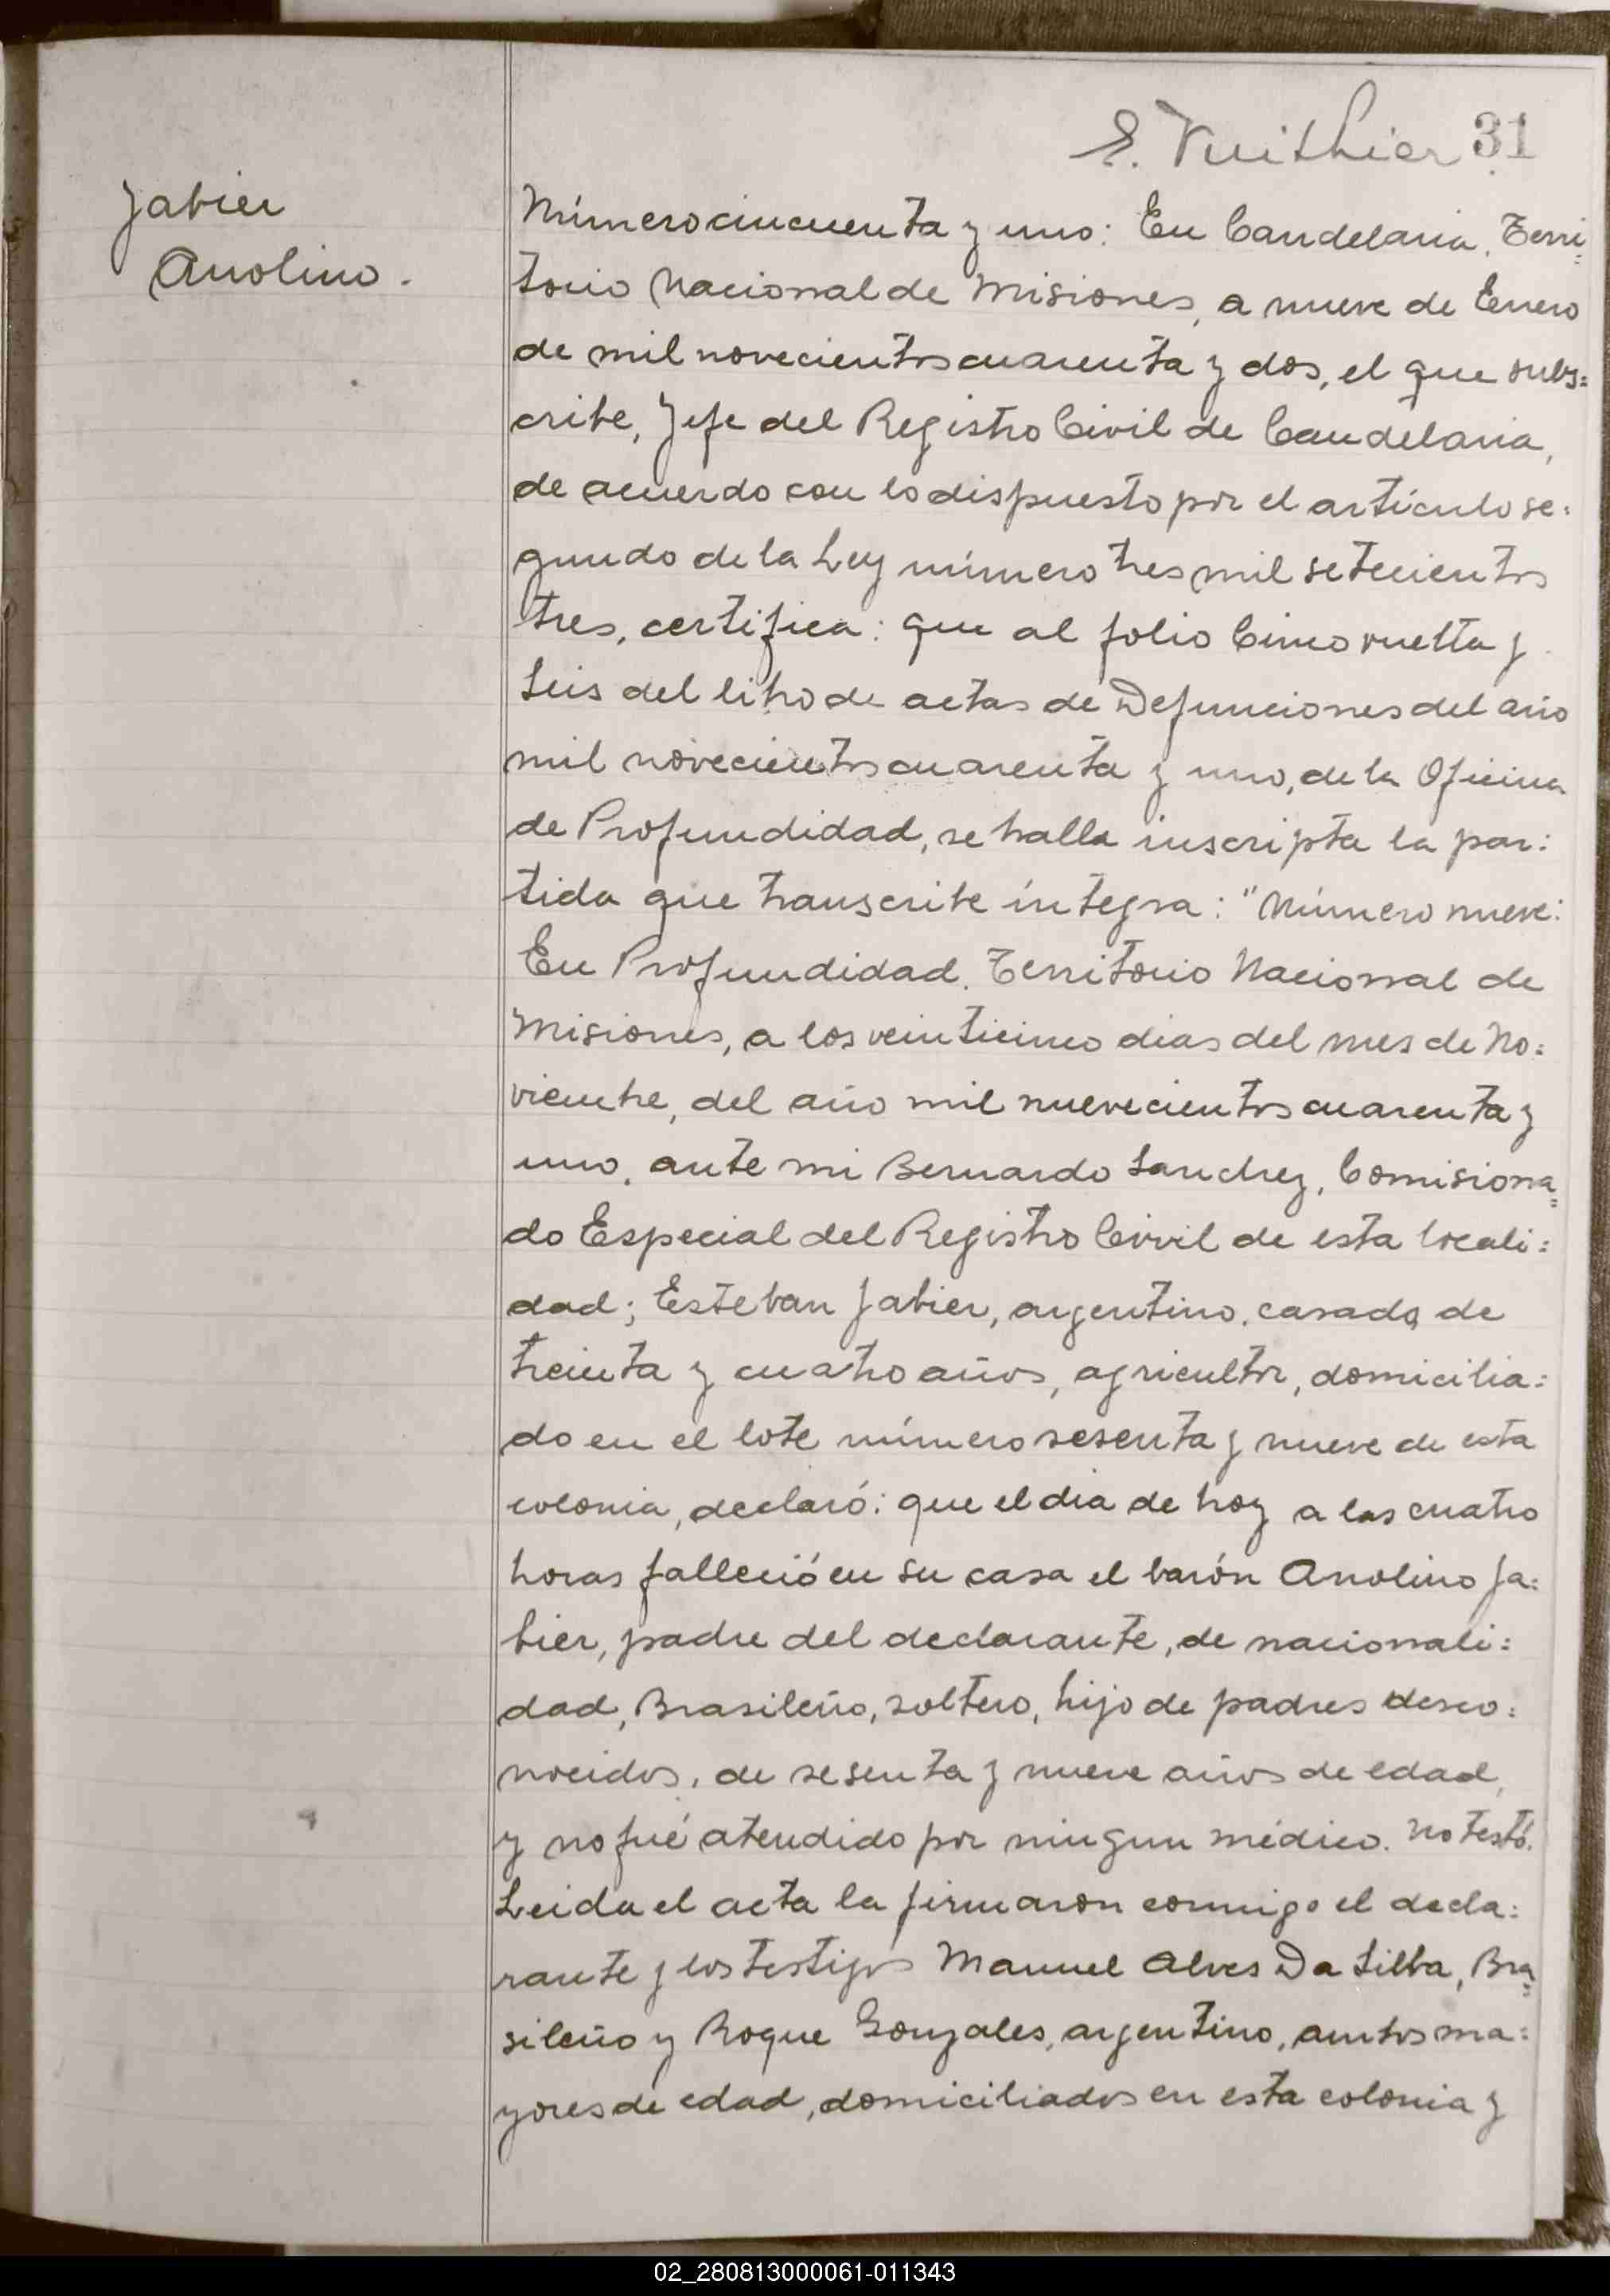 E. Vuithier 31
Jabier
Anolino.
Número cincuenta y uno: En Candelaria, Terri=
torio Nacional de Misiones, a nueve de Enero
de mil novecientos cuarenta y dos, el que subs=
cribe, Jefe del Registro Civil de Candelaria,
de acuerdo con lo dispuesto por el artículo se=
gundo de la Ley número tres mil setecientos
tres, certifica: que al folio Cinco vuelta y
Seis del libro de actas de Defunciones del año
mil novecientos cuarenta y uno, de la Oficina
de Profundidad, se halla inscripta la par=
tida que transcribe íntegra: "Número nueve:
En Profundidad. Territorio Nacional de
Misiones, a los veinticinco dias del mes de No=
viembre, del año mil nuevecientos cuarenta y
uno, ante mi Bernardo Sanchez, Comisiona=
do Especial del Registro Civil de esta locali=
dad; Esteban Jabier, argentino, casado, de
treinta y cuatro años, agricultor, domicilia=
do en el lote número sesenta y nueve de esta
colonia, declaró: que el dia de hoy a las cuatro
horas falleció en su casa el barón Anolino Ja=
bier, padre del declarante, de nacionali=
dad, Brasileño, soltero, hijo de padres desco=
nocidos, de sesenta y nueve años de edad,
y no fué atendido por ningun médico. No testó.
Leida el acta la firmaron conmigo el decla=
rante y los testigos Manuel Alves Da Silba, Bra=
sileño y Roque Gonzales, argentino, ambos ma=
yores de edad, domiciliados en esta colonia y
02_280813000061-011343